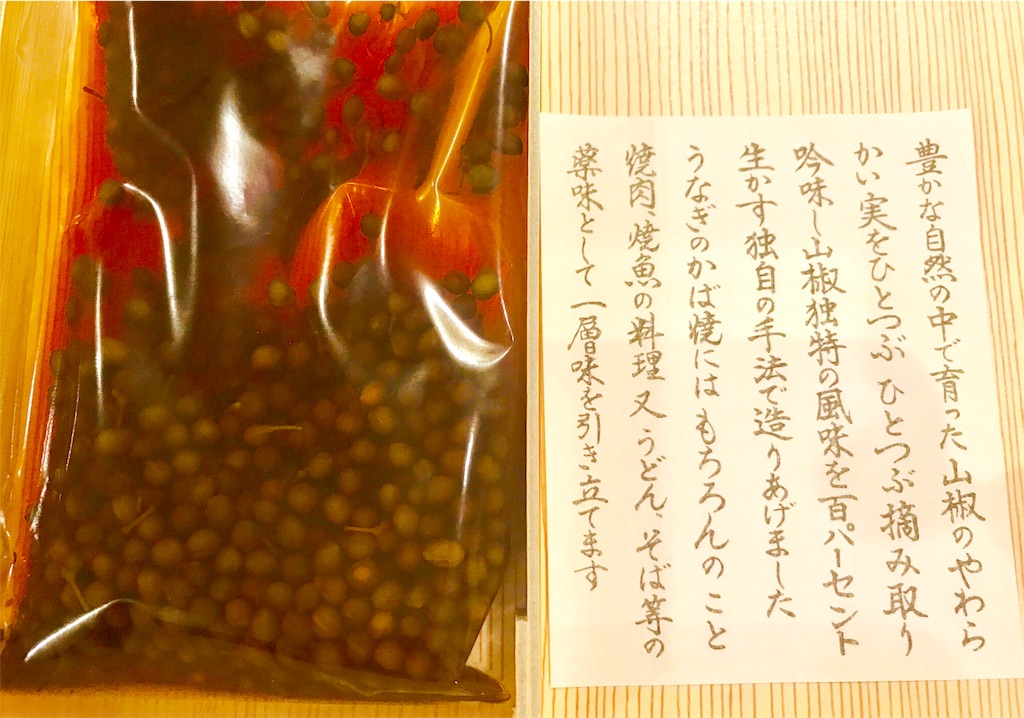 豊かな自然の中で育った山椒のやわら
かい実をひとつぶひとつぶ摘み取り
吟味し山椒独特の風味を百パーセント
生かす独自の手法で造りあげました
うなぎのかば焼にはもちろんのこと
焼肉、焼魚の料理又うどん、そば等の
薬味として一層味を引き立てます